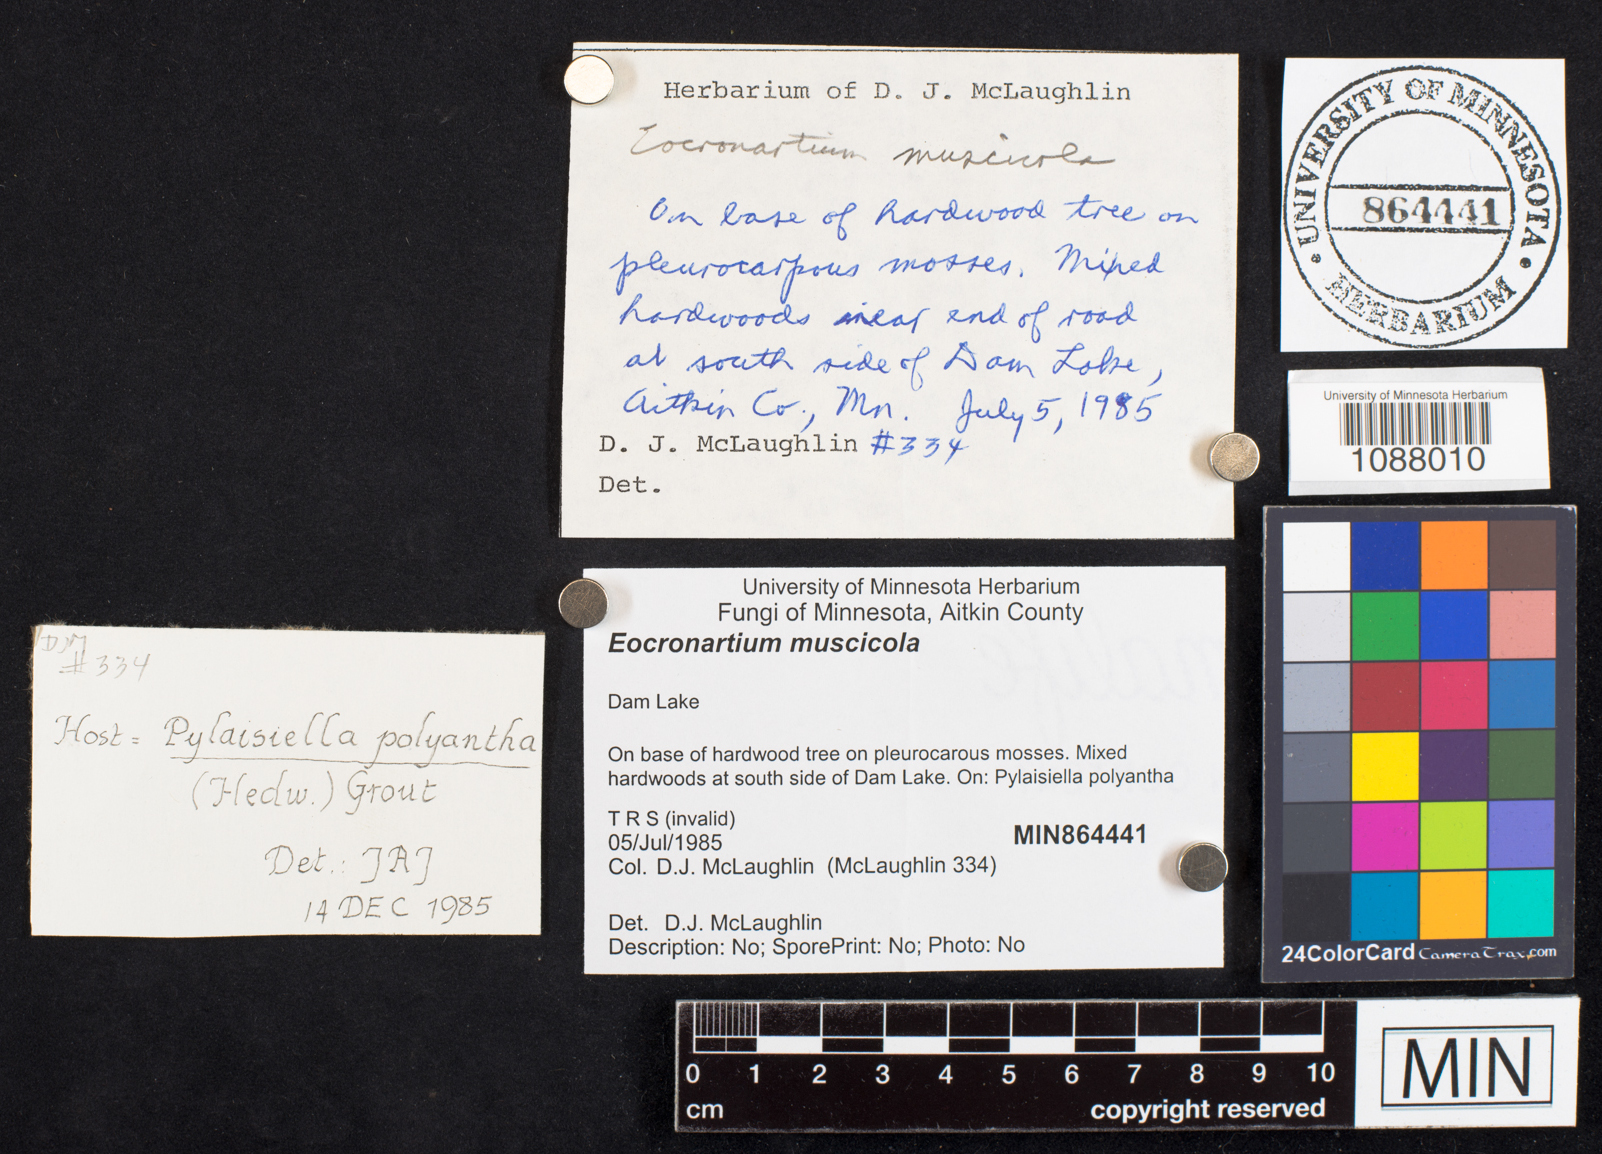 Herbarium of D. J. McLaughlin
Eocronartium muscicola
On base of hardwood tree on
pleurocarpous mosses. Mixed
hardwoods near end of road
at south side of Dam Lake,
Aitkin Co., Mn. July 5, 1985
D. J. McLaughlin #334
Det.
UNIVERSITY OF MINNESOTA
864441
HERBARIUM
University of Minnesota Herbarium
1088010
DJM
#334
Host = Pylaisiella polyantha
(Hedw.) Grout
Det.: JAJ
14 DEC 1985
University of Minnesota Herbarium
Fungi of Minnesota, Aitkin County
Eocronartium muscicola
Dam Lake
On base of hardwood tree on pleurocarous mosses. Mixed
hardwoods at south side of Dam Lake. On: Pylaisiella polyantha
T R S (invalid)
05/Jul/1985
MIN864441
Col. D.J. McLaughlin (McLaughlin 334)
Det. D.J. McLaughlin
Description: No; SporePrint: No; Photo: No
24ColorCard CameraTrax.com
0 1 2 3 4 5 6 7 8 9 10
cm
copyright reserved
MIN